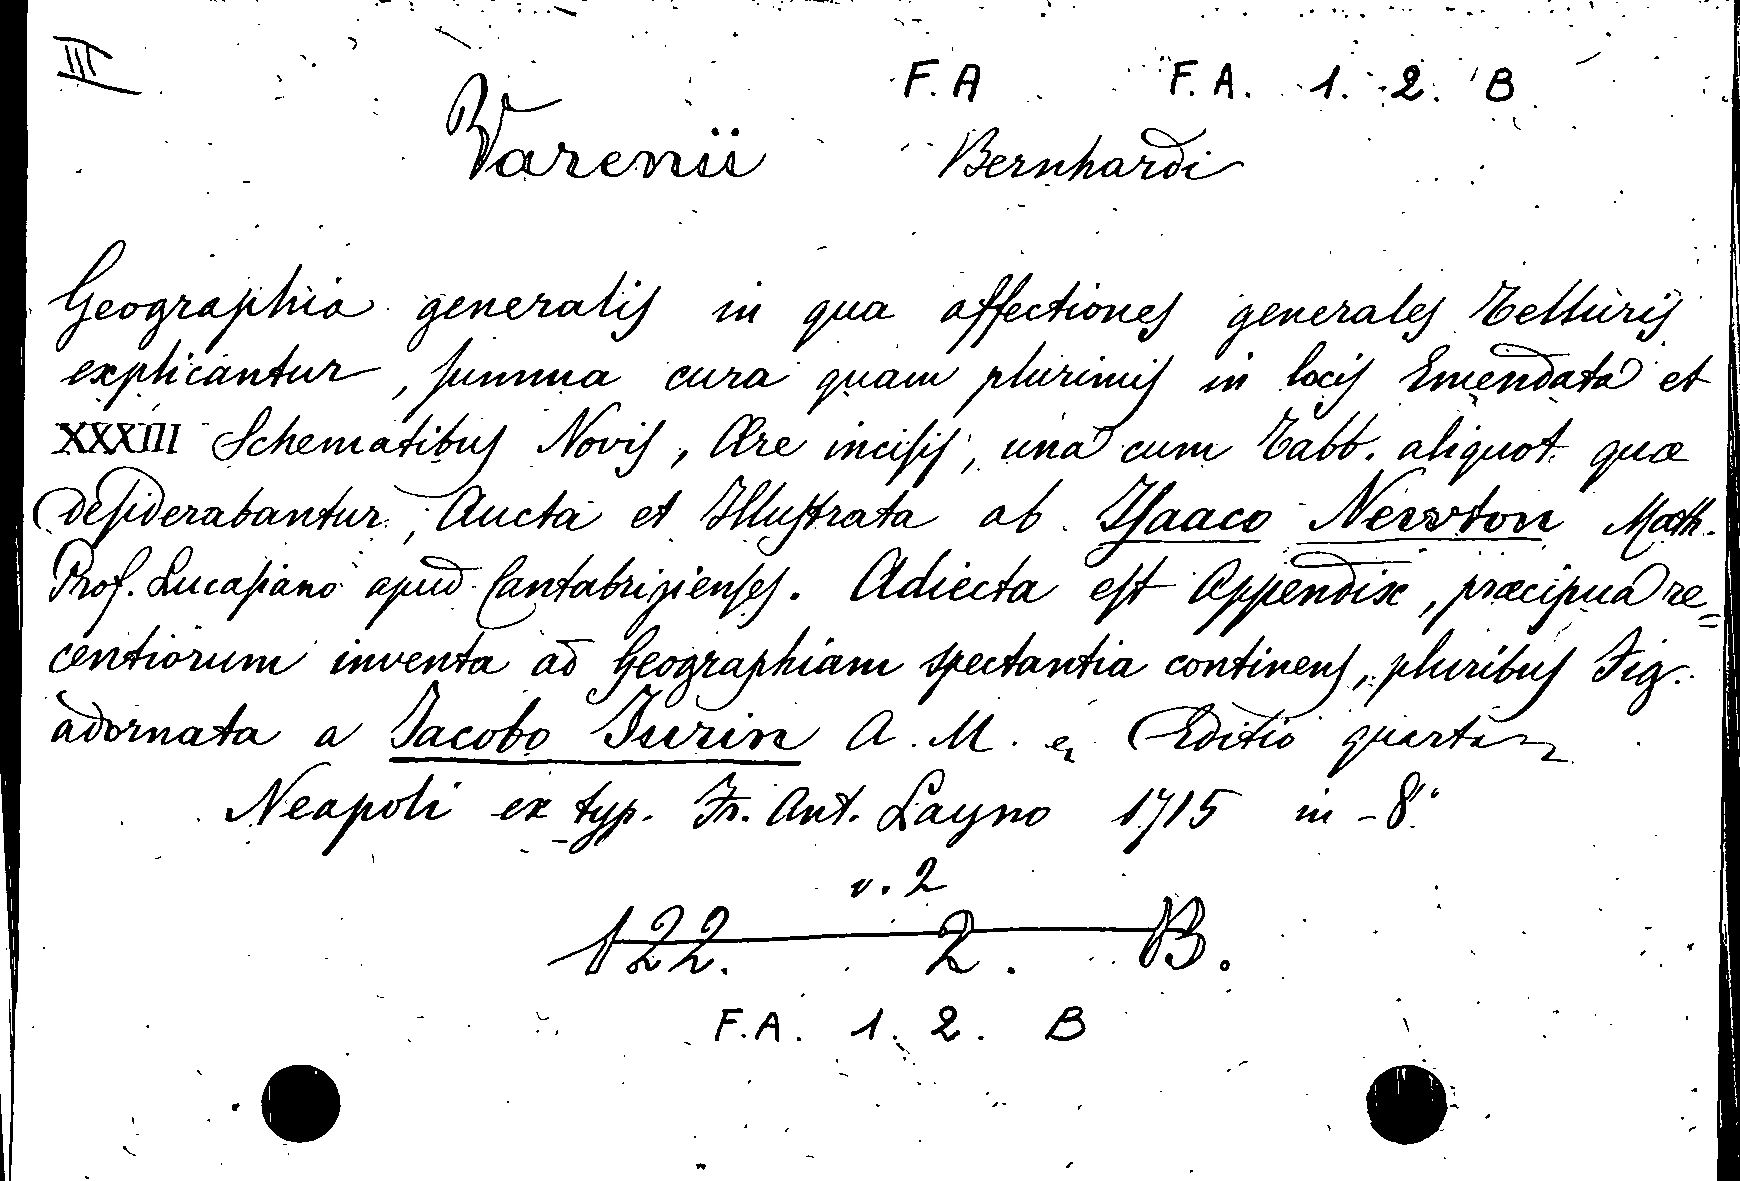 III
F.A F.A. 1. 2. B
Varenii Bernhardi
Geographia generalis in qua affectiones generales Telluris
explicantur, summa cura quam plurimis in locis Emendata et
XXXIII Schematibus Novis, Ære incisis, una cum Tabb. aliquot quæ
desiderabantur, Aucta et Illustrata ab Isaaco Newton Math.
Prof. Lucasiano apud Cantabrigienses. Adiecta est Appendix, præcipua re=
centiorum inventa ad Geographiam spectantia continens, pluribus Fig.
adornata a Jacobo Jurin A. M. Editio quarta
Neapoli ex typ. Fr. Ant. Layno 1715 in-8°
v. 2
122. 2. B.
F.A. 1. 2. B